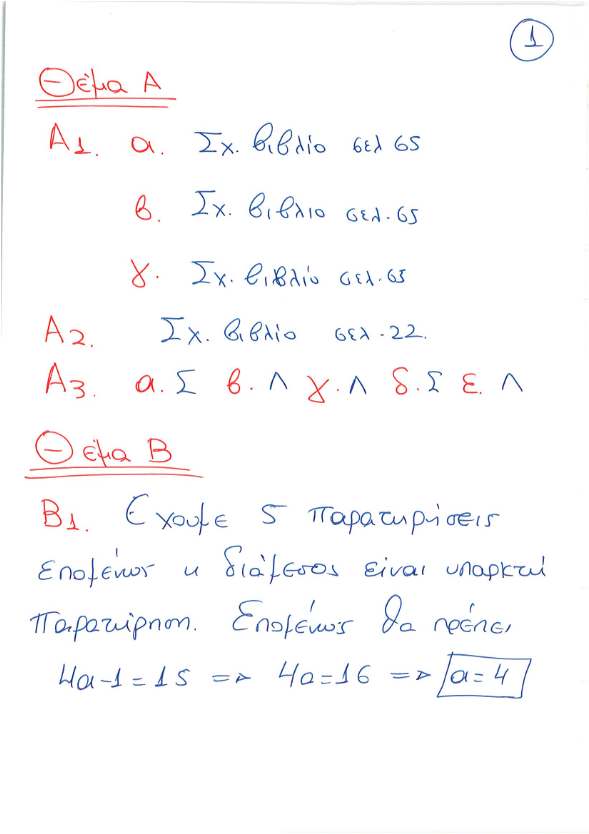 1
Θέμα Α
Α1. α. Σχ. βιβλίο σελ 65
β. Σχ. βιβλιο σελ. 65
γ. Σχ. βιβλίο σελ. 65
Α2. Σχ. βιβλίο σελ. 22.
Α3. α. Σ β. Λ γ. Λ δ. Σ ε. Λ
Θέμα Β
Β1. Έχουμε 5 παρατηρήσεις
επομένως η διάμεσος είναι υπαρκτή
παρατήρηση. Επομένως θα πρέπει
4α-1=15 => 4α=16 => α=4